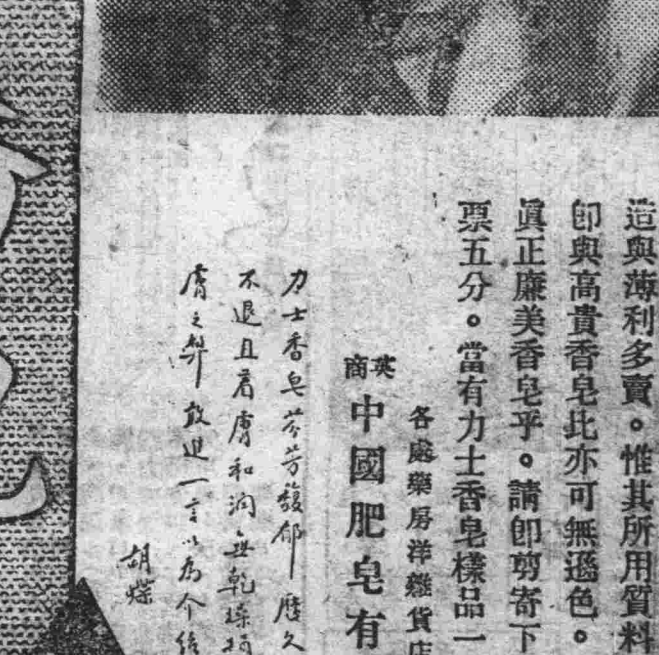 造與薄利多賣。惟其所用質料
卽與高貴香皂比亦可無遜色。
眞正廉美香皂乎。請卽剪寄下
票五分。當有力士香皂樣品一
各處藥房洋雜貨店
英商
中國肥皂有
力士香皂芬芳馥郁歷久
不退且着膚和潤無乾燥
膚之弊敢進一言以爲介紹
胡蝶